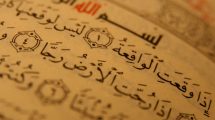 بِسْمِ اللَّهِ
إِذَا وَقَعَتِ الْوَاقِعَةُ ١ لَيْسَ لِوَقْعَتِهَا
إِذَا رُجَّتِ الْأَرْضُ رَجًّا ٤
مُّنۢبَثًّا ٦ وَكُنتُمْ